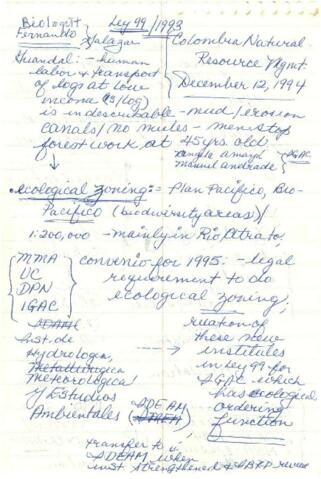 Biologist
Fernando
Salazar
Ley 99/1993
Colombia Natural
Resource Mgmt
December 12, 1994
Guandal: - human
labor & transport
of logs at low
income ($3/log)
is indescribable - mud/erosion
canals/no mules - men stop
forest work at 45 yrs old.
Angela Amaya
Manuel Andrade
IGAC
ecological zoning: = Plan Pacifico, Bio-
Pacifico (biodiversity areas)/
1:200,000 - mainly in Rio Atrato.
MMA
UC
DPN
IGAC
convenio for 1995: - legal
requirement to do
ecological zoning;
IDEAM
Inst. de
Hydrologia,
Metallurgica
Meteorologica
y Estudios
Ambientales
IDEAM
creation of
these new
institutes
in Ley 99 for
IGAC which
has ecological
ordering
function
transfer to
IDEAM when
inst strengthened